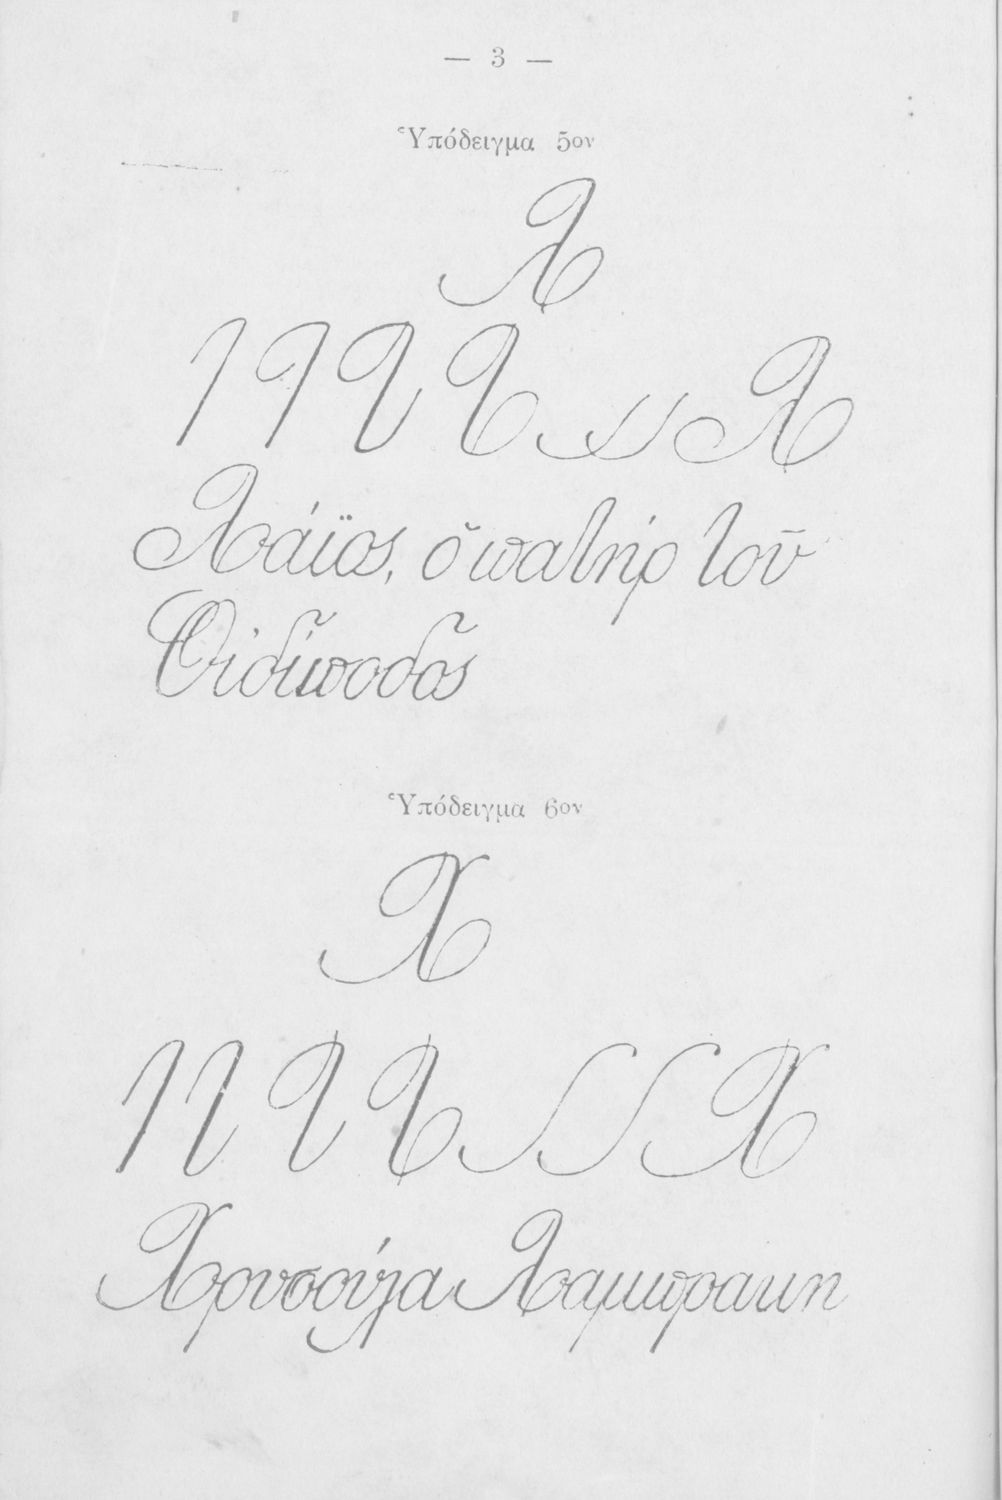 — 3 —
Ὑπόδειγμα 5ον
Λ
Λ
Λάϊος, ὁ πατὴρ τοῦ
Οἰδίποδος
Ὑπόδειγμα 6ον
Χ
Χ
Χρυσούλα Λαμπρακη